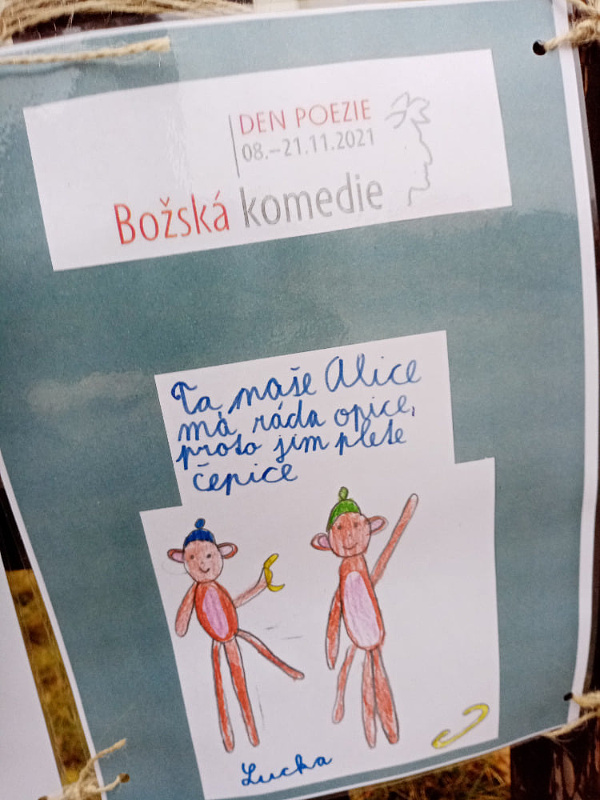 DEN POEZIE
08.–21.11.2021
Božská komedie
Ta naše Alice
má ráda opice,
proto jim plete
čepice
Lucka